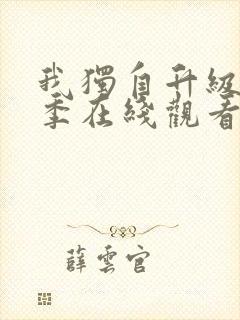 我獨自升級
季在綫觀看
薛雲官